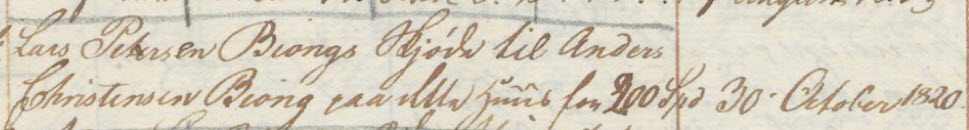 Lars Petersen Biongs Skjøde til Anders
Christensen Biong paa et Huus for 200 Spd 30. October 1820.